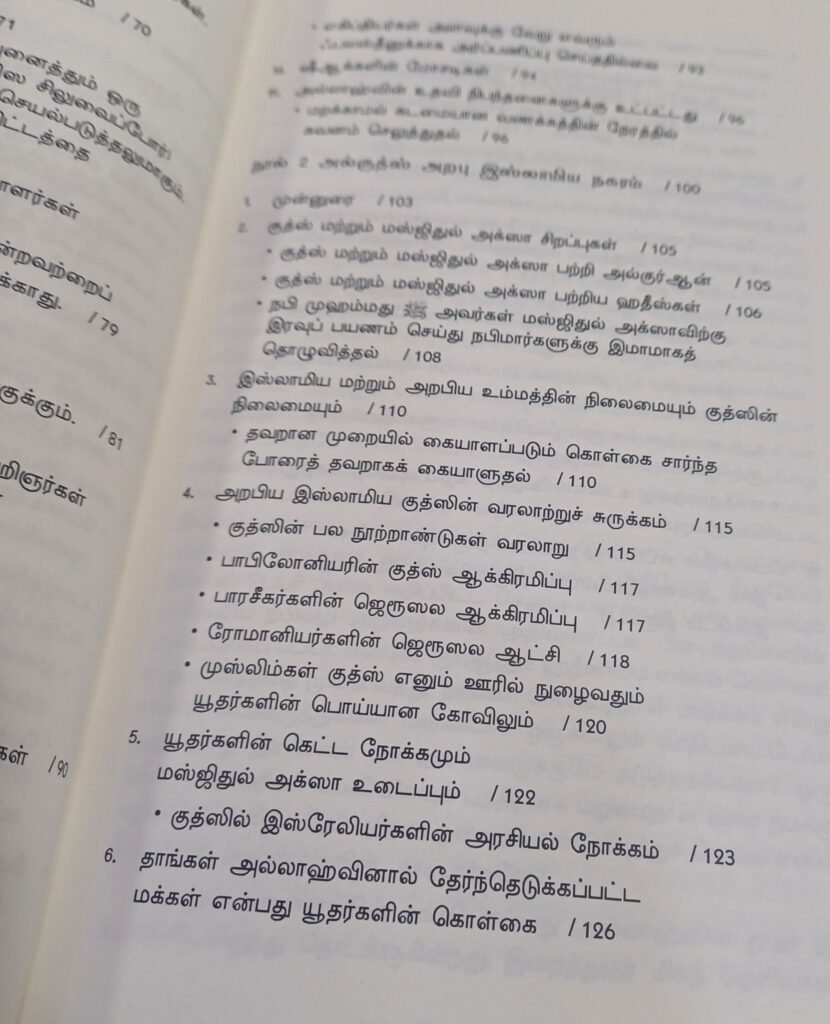 / 70
71
னைத்தும் ஒரு
சிலுவைப்போர்
செயல்படுத்தலுமாகும்.
ட்டத்தை
ளர்கள்
ன்றவற்றைப்
க்காது. / 79
குக்கும். / 81
றிஞர்கள்
கள் / 90
அளவுக்கு வேறு எவரும்
அர்ப்பணிப்பு செய்ததில்லை / 93
ஷீஆக்களின் மோசடிகள் / 94
அல்லாஹ்வின் உதவி நிபந்தனைகளுக்கு உட்பட்டது / 96
• மறக்காமல் கடமையான வணக்கத்தின் நேரத்தில்
கவனம் செலுத்துதல் / 96
நூல் 2 அல்குத்ஸ் அரபு இஸ்லாமிய நகரம் / 100
1. முன்னுரை / 103
2. குத்ஸ் மற்றும் மஸ்ஜிதுல் அக்ஸா சிறப்புகள் / 105
• குத்ஸ் மற்றும் மஸ்ஜிதுல் அக்ஸா பற்றி அல்குர்ஆன் / 105
• குத்ஸ் மற்றும் மஸ்ஜிதுல் அக்ஸா பற்றிய ஹதீஸ்கள் / 106
• நபி முஹம்மது ﷺ அவர்கள் மஸ்ஜிதுல் அக்ஸாவிற்கு
இரவுப் பயணம் செய்து நபிமார்களுக்கு இமாமாகத்
தொழுவித்தல் / 108
3. இஸ்லாமிய மற்றும் அறபிய உம்மத்தின் நிலைமையும் குத்ஸின்
நிலைமையும் / 110
• தவறான முறையில் கையாளப்படும் கொள்கை சார்ந்த
போரைத் தவறாகக் கையாளுதல் / 110
4. அறபிய இஸ்லாமிய குத்ஸின் வரலாற்றுச் சுருக்கம் / 115
• குத்ஸின் பல நூற்றாண்டுகள் வரலாறு / 115
• பாபிலோனியரின் குத்ஸ் ஆக்கிரமிப்பு / 117
• பாரசீகர்களின் ஜெரூஸல ஆக்கிரமிப்பு / 117
• ரோமானியர்களின் ஜெரூஸல ஆட்சி / 118
• முஸ்லிம்கள் குத்ஸ் எனும் ஊரில் நுழைவதும்
யூதர்களின் பொய்யான கோவிலும் / 120
5. யூதர்களின் கெட்ட நோக்கமும்
மஸ்ஜிதுல் அக்ஸா உடைப்பும் / 122
• குத்ஸில் இஸ்ரேலியர்களின் அரசியல் நோக்கம் / 123
6. தாங்கள் அல்லாஹ்வினால் தேர்ந்தெடுக்கப்பட்ட
மக்கள் என்பது யூதர்களின் கொள்கை / 126